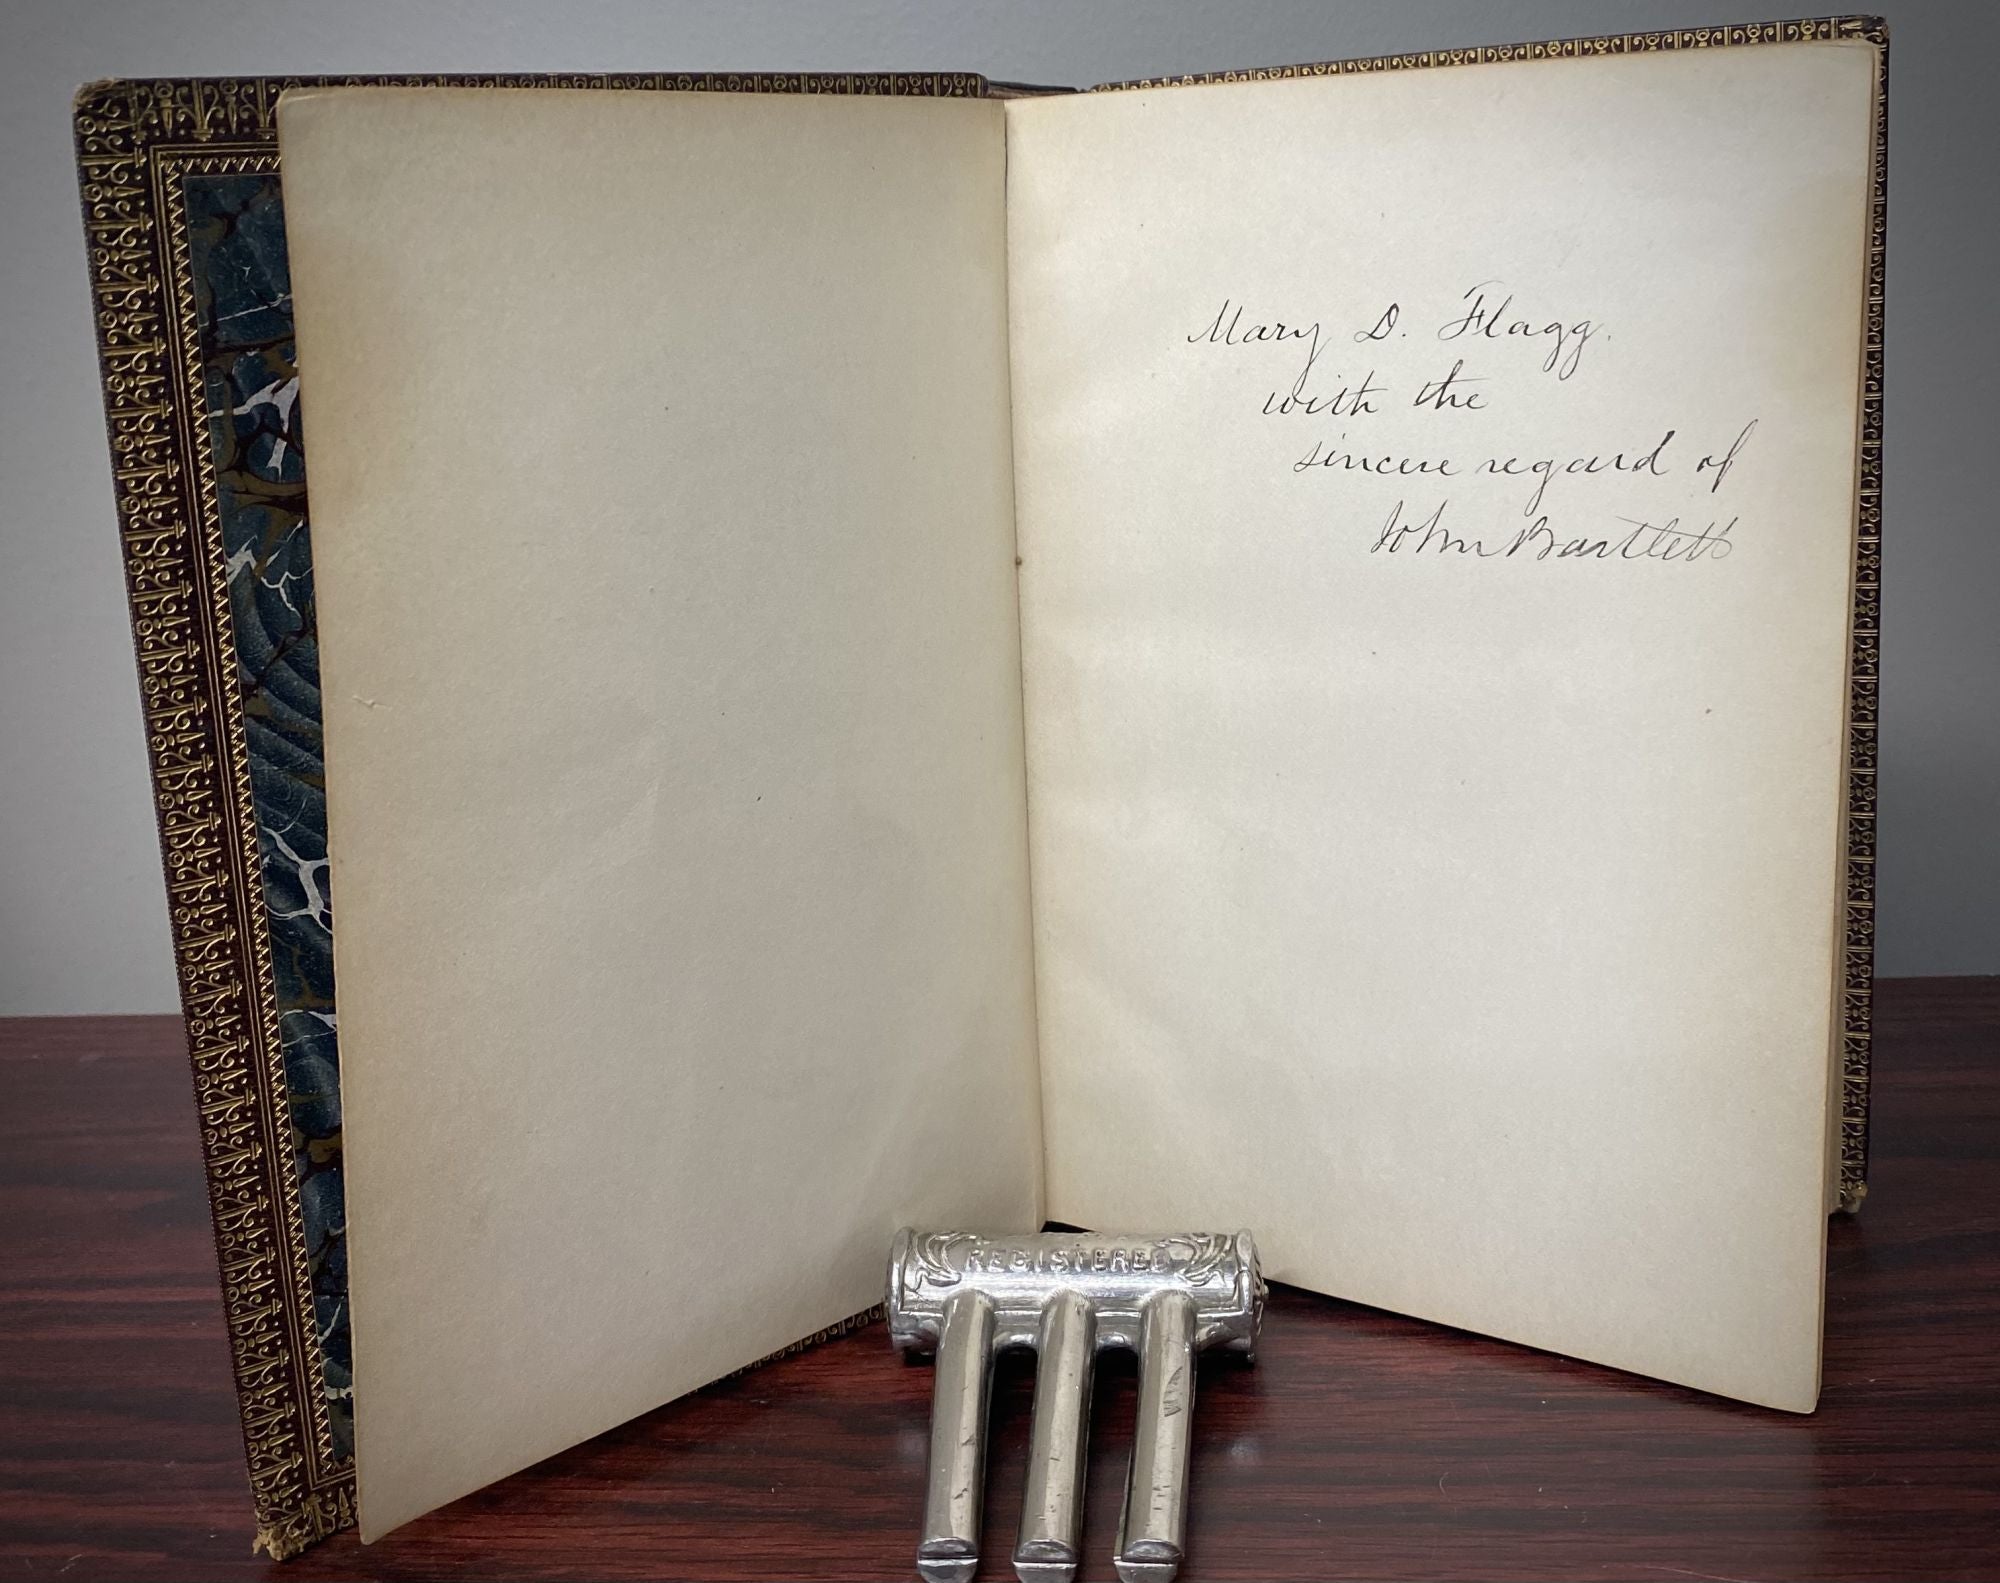 Mary D. Flagg.
with the
sincere regard of
John Bartlett
REGISTERED